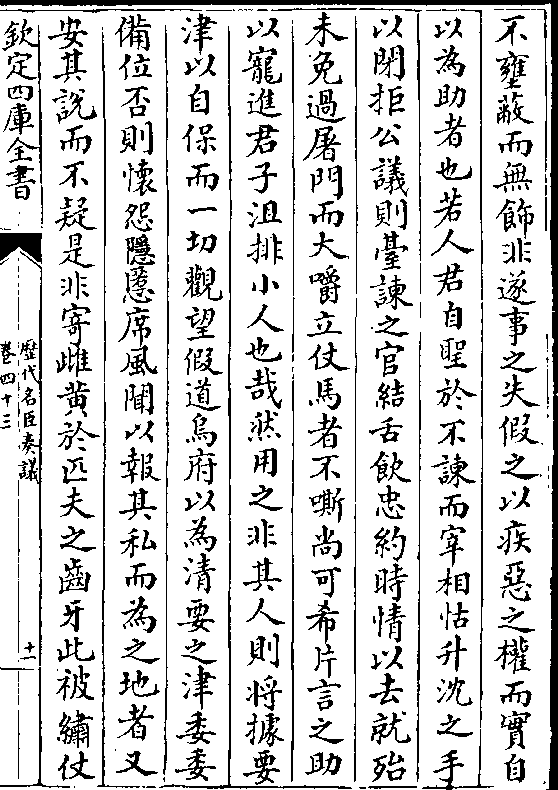 不壅蔽而無飾非遂事之失假之以疾惡之權而實自
以為助者也若人君自聖於不諫而宰相怙升沈之手
以閉拒公議則臺諫之官結舌飲忠約時情以去就殆
未免過屠門而大嚼立仗馬者不嘶尚可希片言之助
以寵進君子沮排小人也哉然用之非其人則将據要
津以自保而一切觀望假道烏府以為清要之津委委
備位否則懷怨隱慝席風聞以報其私而為之地者又
安其說而不疑是非寄雌黄於匹夫之齒牙此被繡仗
欽定四庫全書
歷代名臣奏議
卷四十三
十一